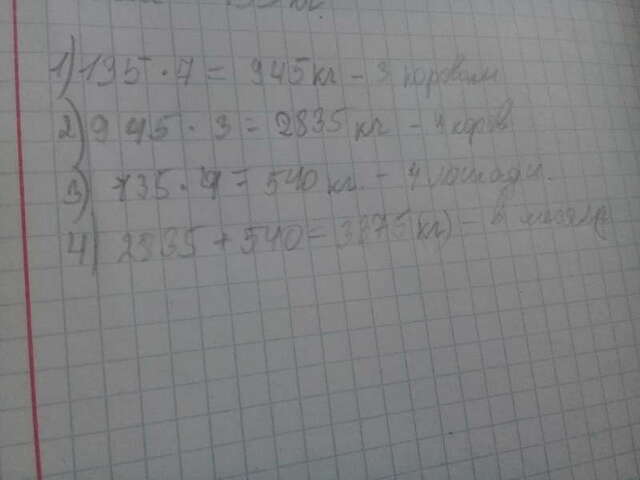 кг.
1) 135 · 7 = 945 кг - 3 коровам
2) 945 · 3 = 2835 кг - коров
3) 135 · 4 = 540 кг. - 4 лошади.
4) 2835 + 540 = 3375 (кг) - в месяц